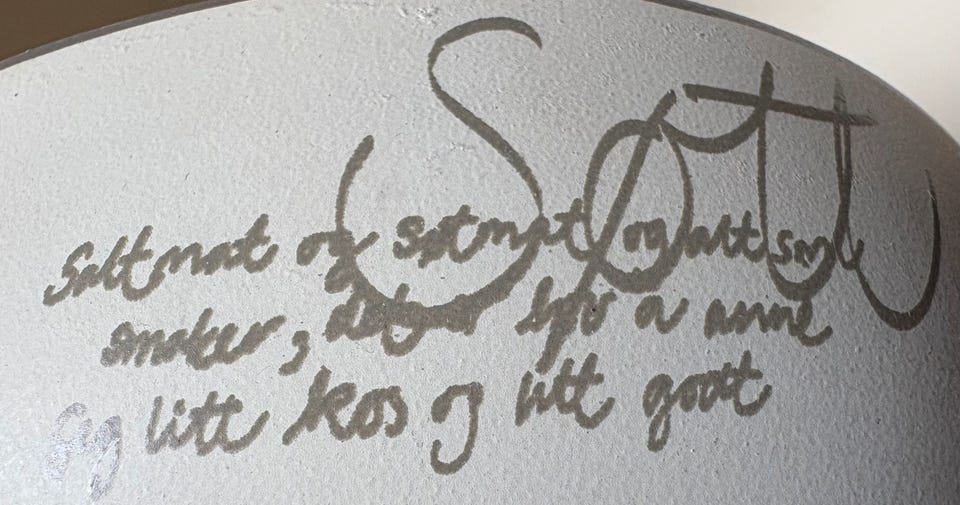 Søtt
Saltmat og søtmat og alt som
smaker, det gjør livet å unne
seg litt kos og litt godt